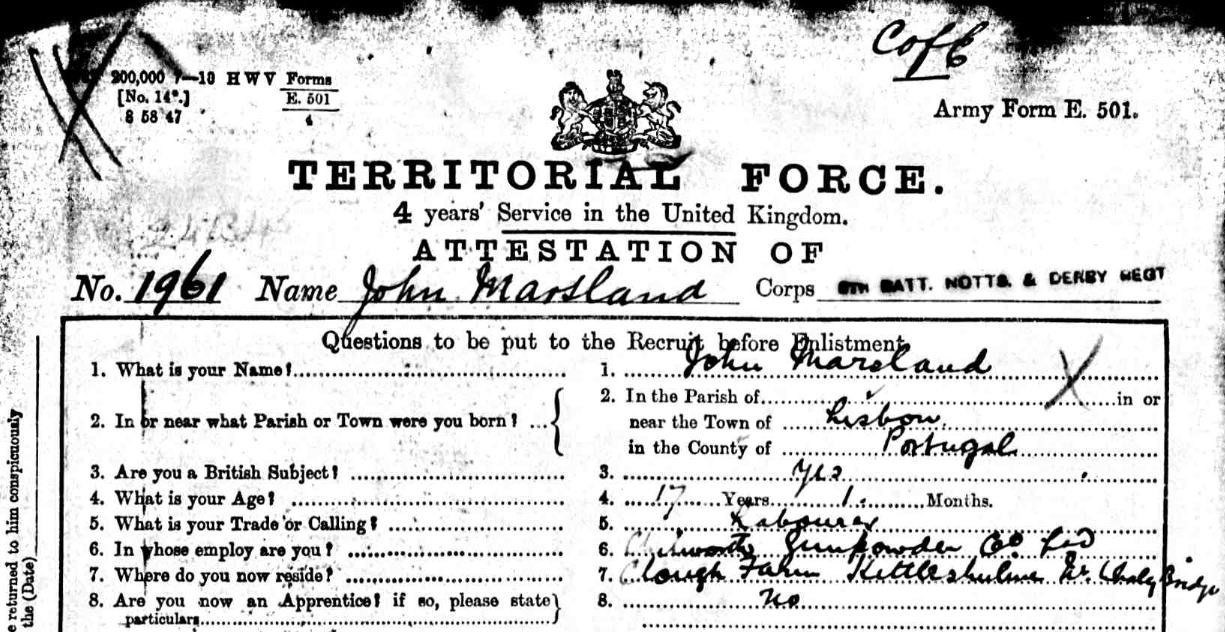 C of E
200,000 7—10 H W V Forms
[No. 14*.] E. 501
8 58 47 4
Army Form E. 501.
TERRITORIAL FORCE.
4 years' Service in the United Kingdom.
ATTESTATION OF
No. 1961 Name John Marsland Corps 6TH BATT. NOTTS. & DERBY REGT
Questions to be put to the Recruit before Enlistment
1. What is your Name? 1. John Marsland
2. In or near what Parish or Town were you born? 2. In the Parish of in or
near the Town of Lisbon
in the County of Portugal
3. Are you a British Subject? 3. Yes
4. What is your Age? 4. 17 Years 1 Months.
5. What is your Trade or Calling? 5. Labourer
6. In whose employ are you? 6. Chilworth Gunpowder Co. Ltd
7. Where do you now reside? 7. Clough Farm Kettleshulme Nr. Whaley Bridge
8. Are you now an Apprentice? if so, please state 8. No
particulars
e returned to him conspicuously
the (Date)